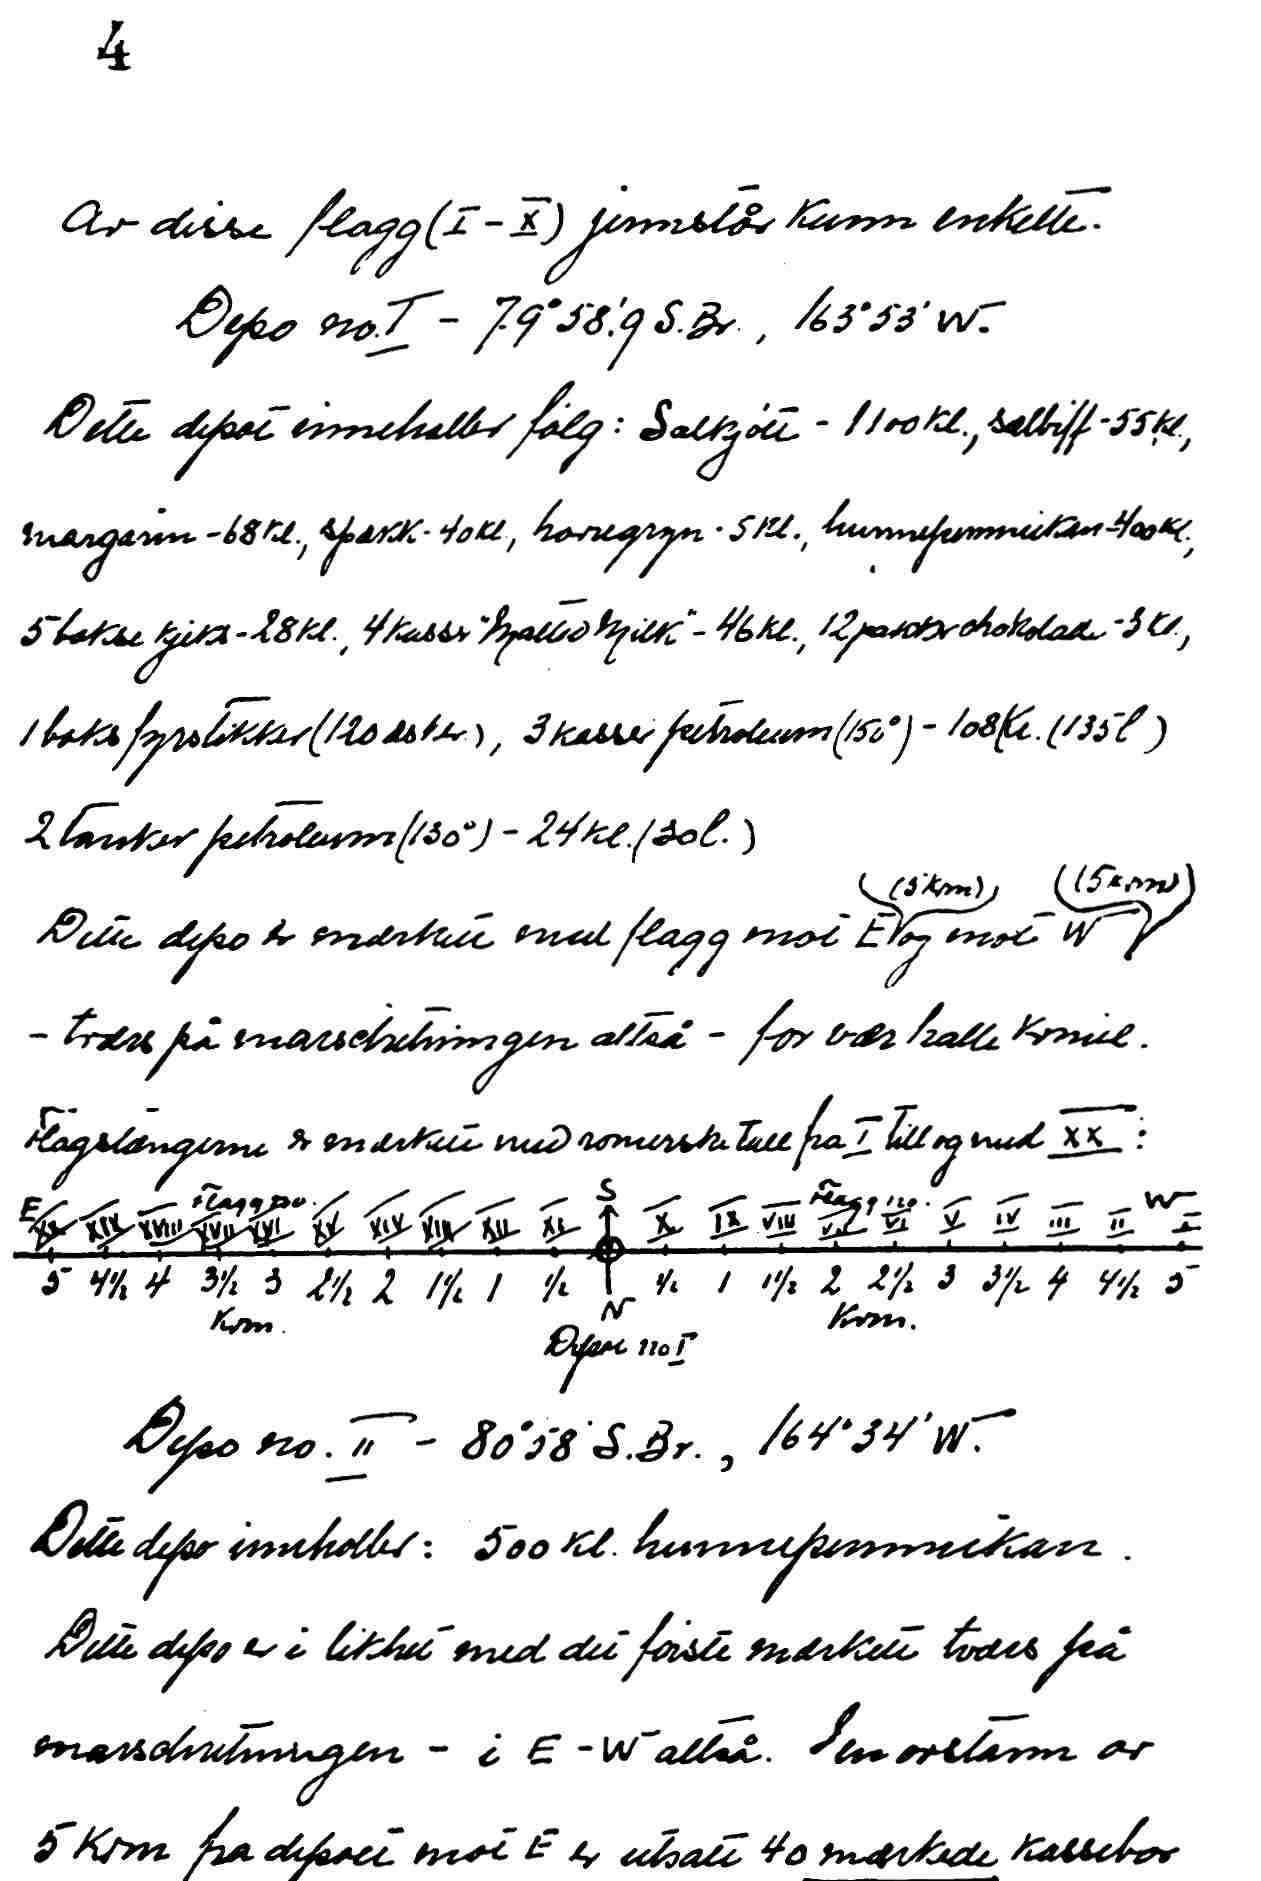 4
Av disse flagg (I - X) jennstår kunn enkelte.
Depo no. I - 79°58'.9 S.Br., 163°53' W.
Dette depot inneholler følg: Sælkjött - 1100 kl., sælbiff - 55 kl.,
margarin - 68 kl., spækk - 40 kl., havregryn - 5 kl., hunnepemmikan - 400 kl.,
5 bokse kjeks - 28 kl., 4 kasser "Malted Milk" - 46 kl., 12 pakker chokolade - 3 kl.,
1 boks fyrstikker (120 æsker), 3 kasser petroleum (150°) - 108 kl. (135 l)
2 tanker petroleum (130°) - 24 kl. (30 l.)
(5 km) (5 km)
Dette depo er mærkett med flagg mot E og mot W
- tværs på marschretningen altså - for vær halle kmiel.
Flagstængerne er mærkett med romerske tall fra I till og med XX :
E Flagg no. S Flagg no. W
XX XIX XVIII XVII XVI XV XIV XIII XII XI X IX VIII VII VI V IV III II I
5 4½ 4 3½ 3 2½ 2 1½ 1 ½ ½ 1 1½ 2 2½ 3 3½ 4 4½ 5
Km. N Km.
Depot no I
Depo no. II - 80°58' S.Br., 164°34' W.
Dette depo inneholler: 500 kl. hunnepemmikan.
Dette depo er i likhet med det første mærkett tværs på
marschretningen - i E - W altså. I en avstann av
5 Km fra depott mot E er utsatt 40 mærkede kassebor